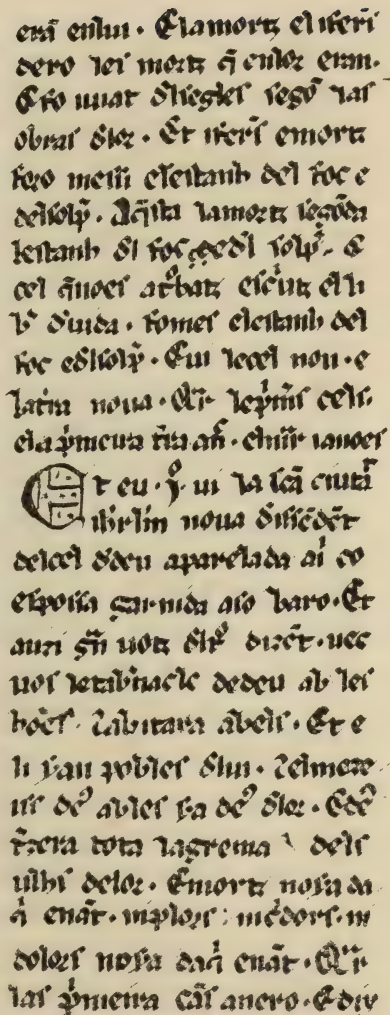 erã enlui · Elamortz eliferſ
dero les mortz q̃ enlor eran ·
E fo iuiat dlſegles ſegõ las
obras dlor · Et iferſ emortz
foro meſſi eleſtanh del foc e
delſolp̃ · Aq̃ſta lamortz ſegõda
leſtanh dl foc edl ſolp̃ · E
cel q̃noes atobatz eſcutz elli
bͦ duida · fomes eleſtanh del
foc edlſolp̃ · E ui lecel nou · e
lat͛ra noua · Qar lep̃mſ cels ·
ela p̃meira t͛ra añ · elmar ianoes
Et eu · Jͦ · ui la scã ciutã
ihrlm noua diſſédét
delcel ddeu aparelada aí co
eſpoſa garnida aſo baro · Et
auzi gñ uotz dlt͛ dizét · uec
uos letab͛nacle dedeu ab les
hões · 7 abitara abels · Et e
li ſan pobles dlui · 7 elmeze
us deͦ ables ſa deͦ dlor · E deͦ
t͛zera tota lagrema dels
ulhs delor · Emortz noſa da
q̃ enãt · niplors : nicdors · ni
dolors noſa daq̃ enãt · Qar
las p̃meira cãs anero · E diſ